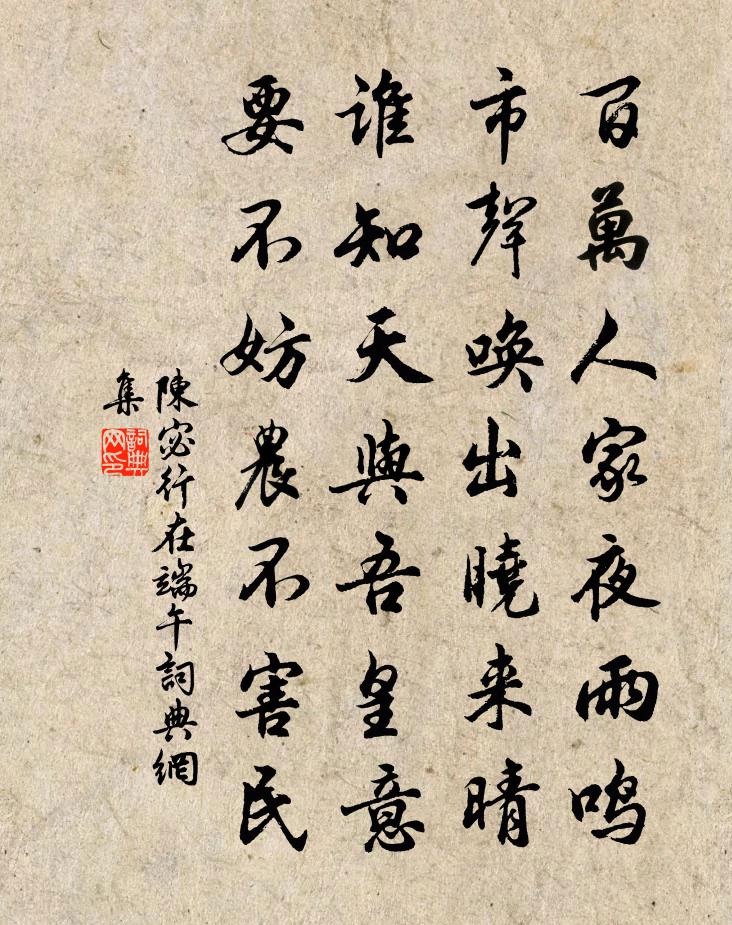 百萬人家夜雨鸣
市聲唤出曉来晴
谁知天與吾皇意
要不妨農不害民
陳宓行在端午詞典網
集
詞典网印